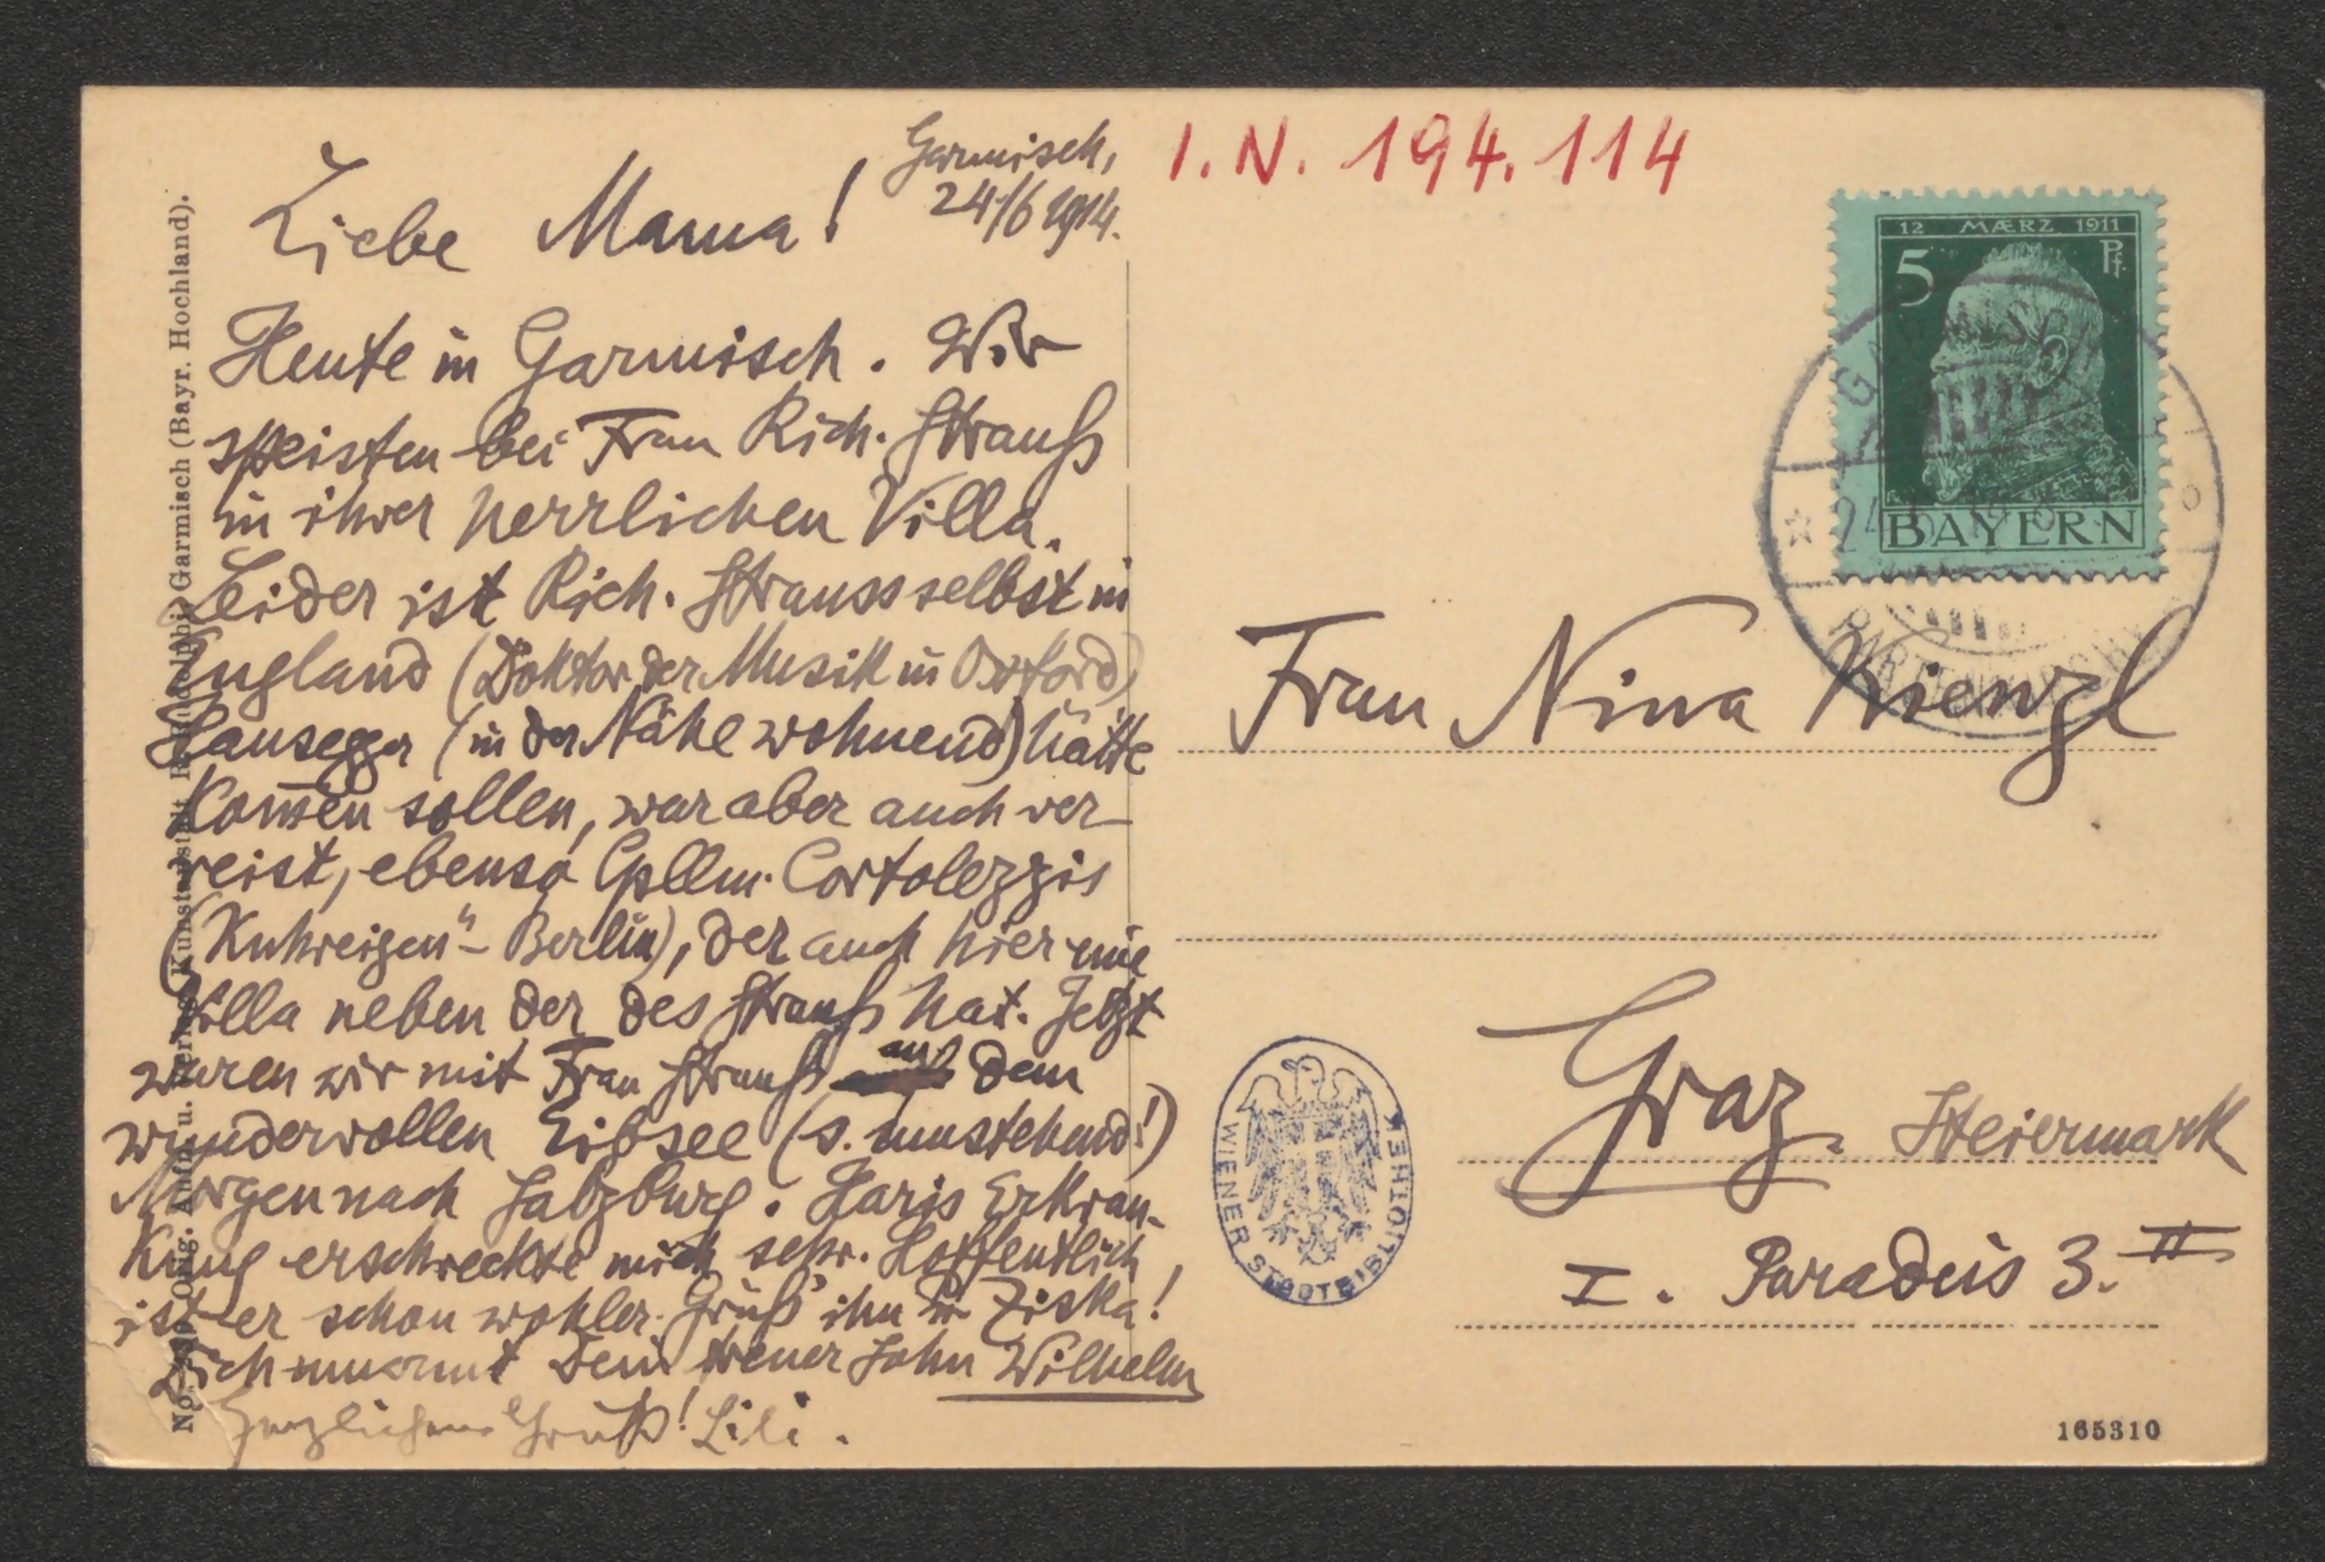 Garmisch,
24/6 1914.
Liebe Mama!
Heute in Garmisch. Wir
speisten bei Frau Rich. Strauß
in ihrer herrlichen Villa.
Leider ist Rich. Strauss selbst in
England (Doktor der Musik in Oxford)
Hausegger (in der Nähe wohnend) hätte
kom̄en sollen, war aber auch ver-
reist, ebenso Cpllm. Cortolezzis
(„Kuhreigen"-Berlin), der auch hier eine
Villa neben der des Strauß hat. Jetzt
waren wir mit Frau Strauß an dem
wundervollen Eibsee (s. umstehend!)
Morgen nach Salzburg. Haris Erkran-
kung erschreckte mich sehr. Hoffentlich
ist er schon wohler. Grüß' ihn u. Ziska!
Dich umarmt Dein treuer Sohn Wilhelm
Herzlichen Gruß! Lili.
Garmisch (Bayr. Hochland).
I.N. 194.114
12 MÆRZ 1911
5 Pf.
BAYERN
GARMISCH
PARTENKIRCHEN
Frau Nina Kienzl
Graz. Steiermark
I. Paradeis 3. II
WIENER STADTBIBLIOTHEK
165310